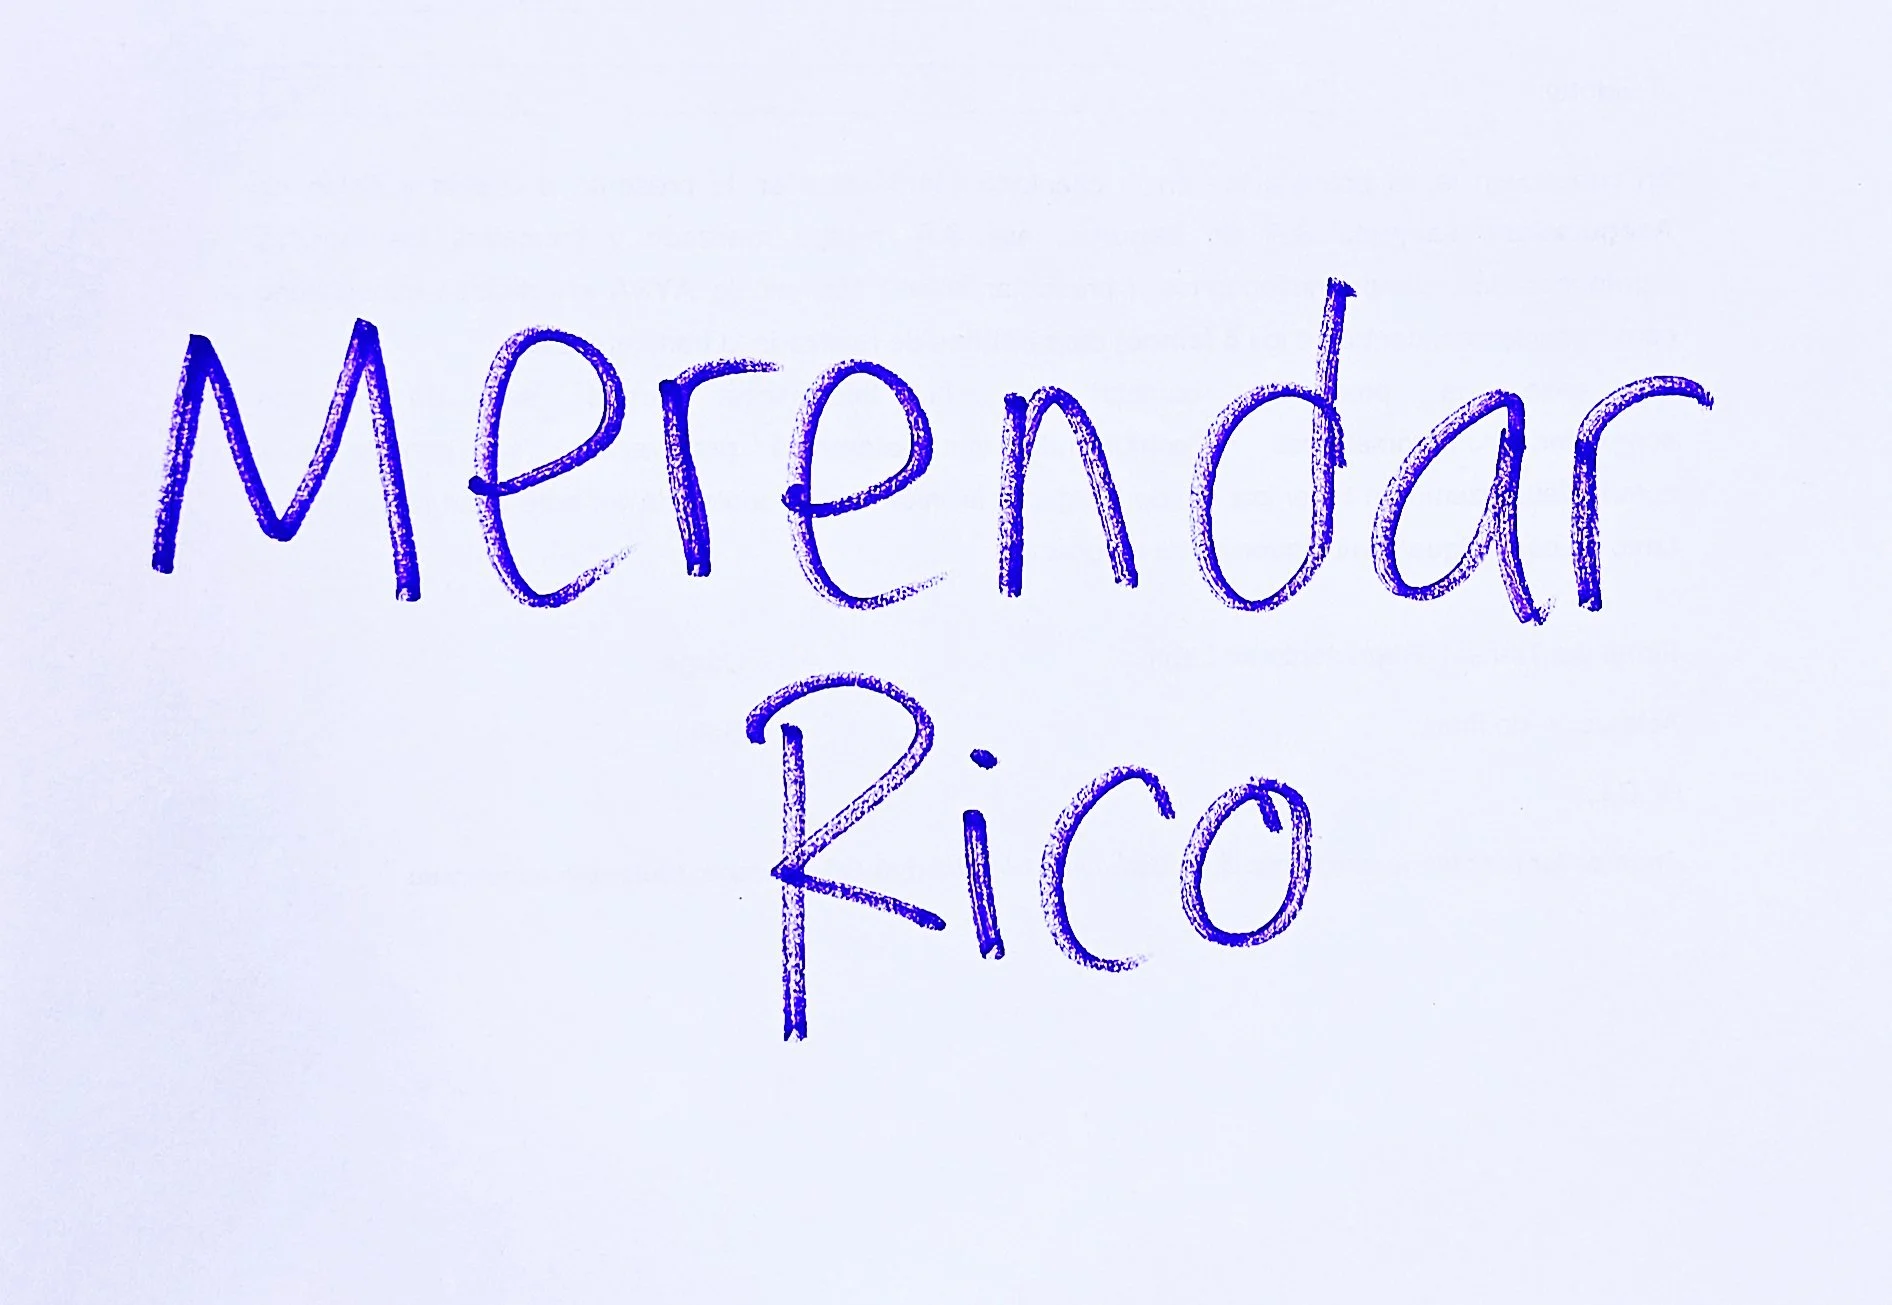 Merendar
Rico